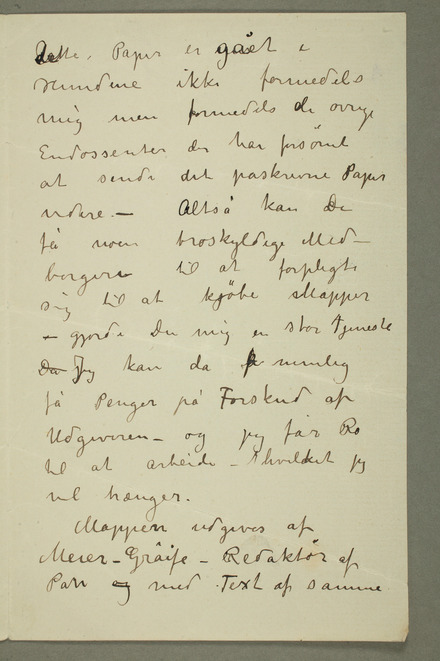 dette. Papir er gåset i
rundene ikke formedels
mig men formedels de øvrige
Endossenter der har forsömt
at sende det paskrevne Papir
videre. – Altså kan De
få noen troskyldige Med–
borgere til at forpligte
sig til at kjöbe Mapper
– gjorde De mig en stor tjeneste
Da Jeg kan da nemlig
få Penger på Forskud af
Udgiveren – og jeg får Ro
til at arbeide – hvilket jeg
vel trænger.
Mappen udgives af
Meier–Gräife – Redaktör af
Pan og med Text af samme